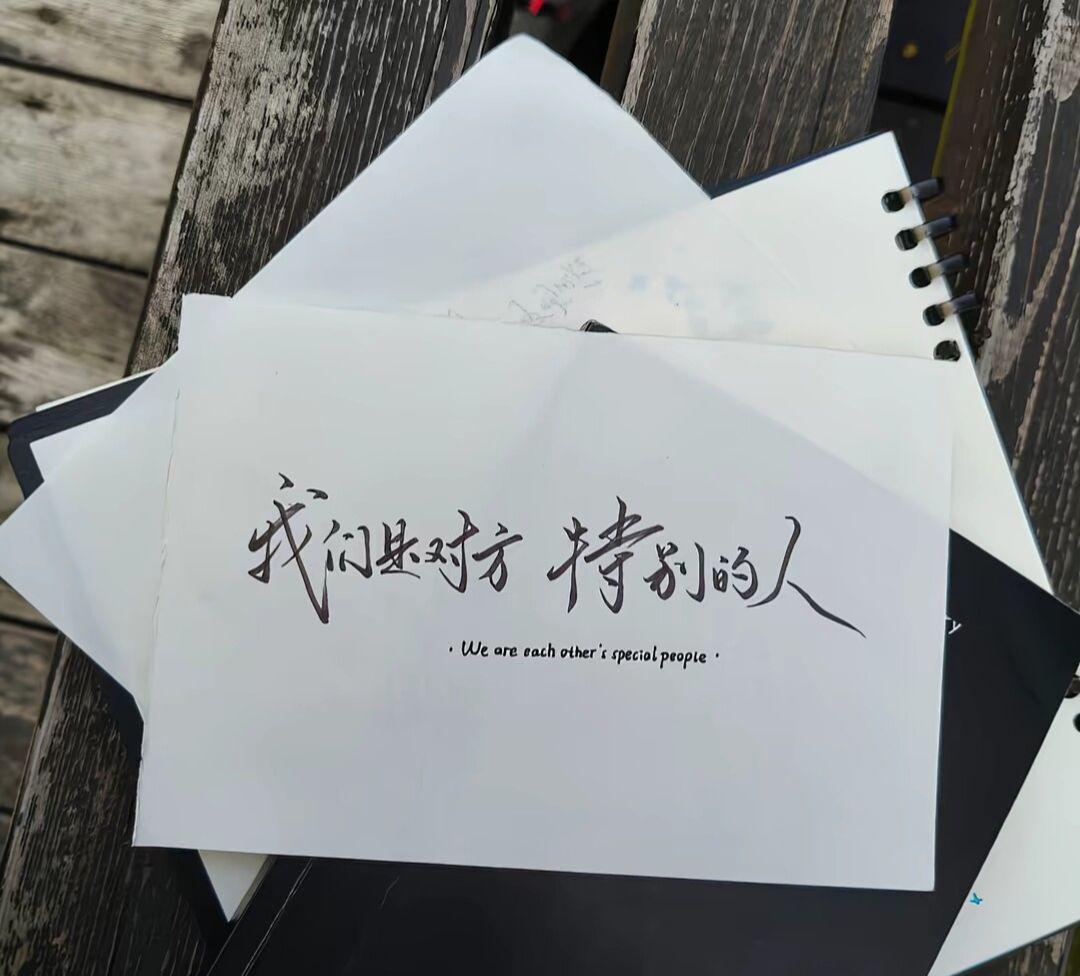 我们是对方 特别的人
· We are each other's special people ·